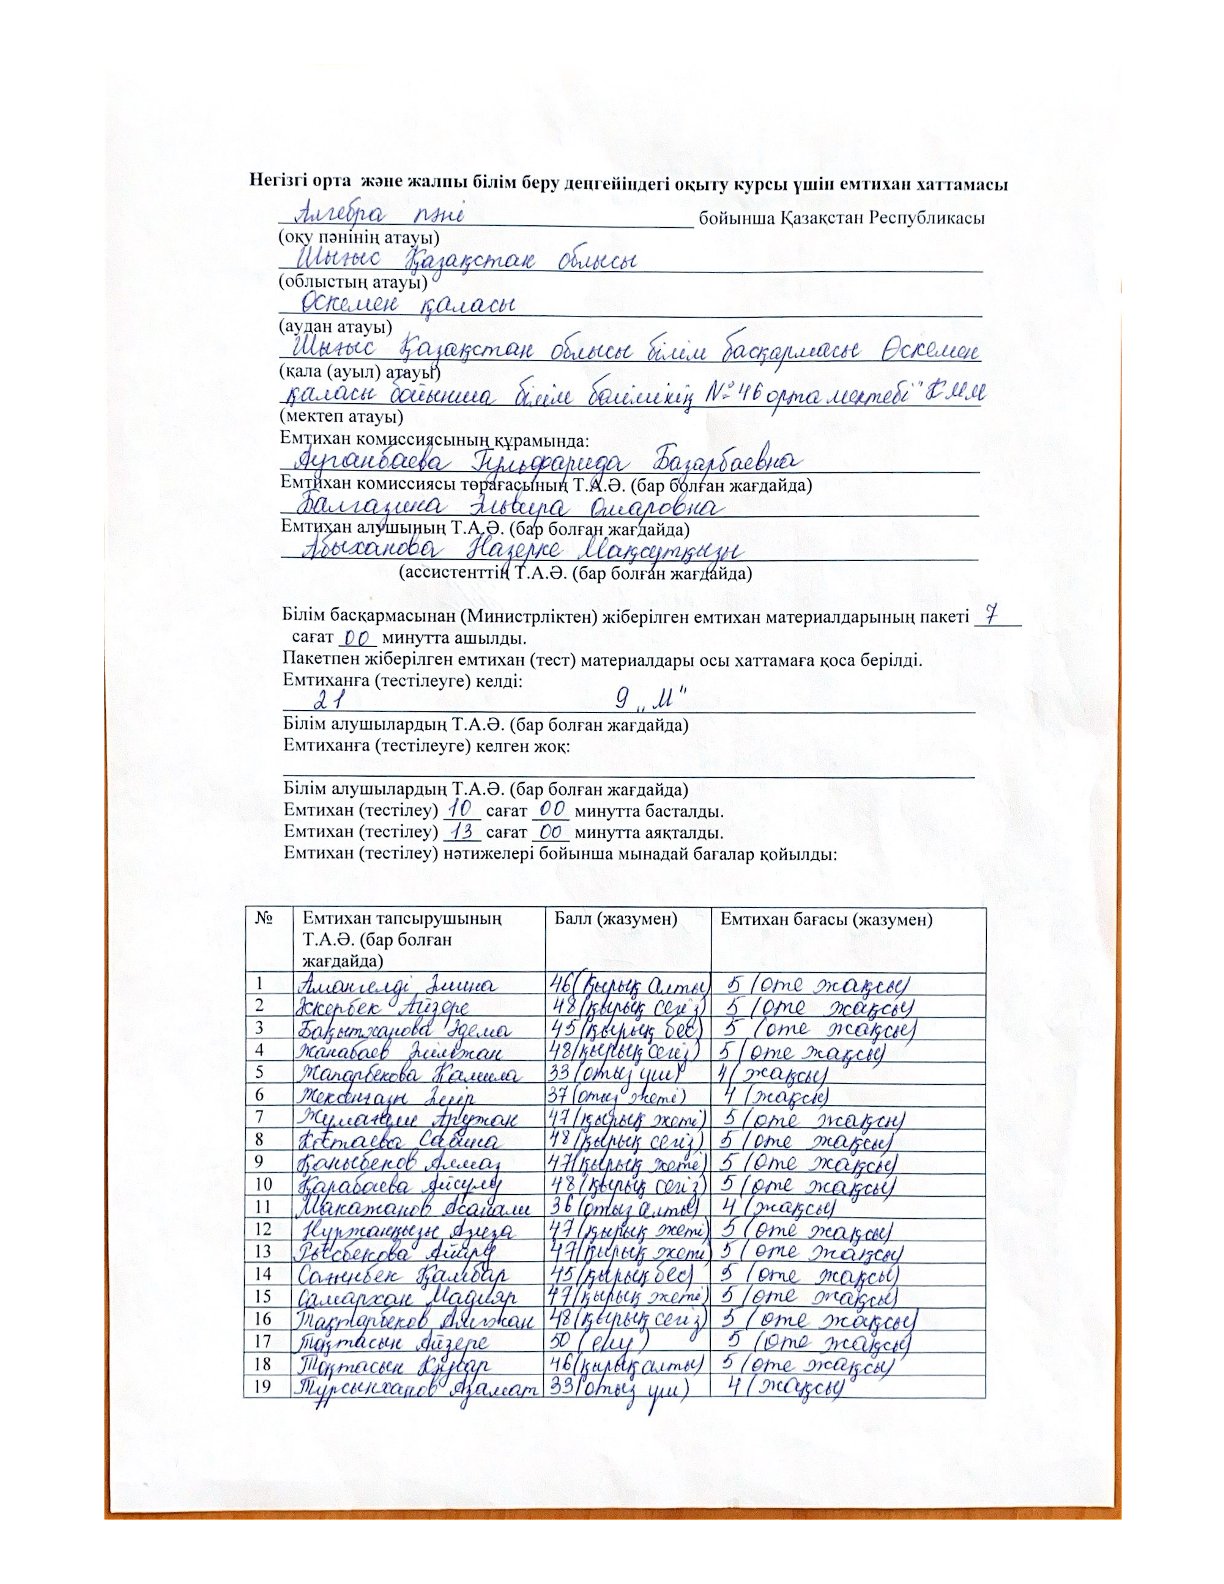 Негізгі орта және жалпы білім беру деңгейіндегі оқыту курсы үшін емтихан хаттамасы
Алгебра пәні бойынша Қазақстан Республикасы
(оқу пәнінің атауы)
Шығыс Қазақстан облысы
(облыстың атауы)
Өскемен қаласы
(аудан атауы)
Шығыс Қазақстан облысы білім басқармасы Өскемен
(қала (ауыл) атауы)
қаласы бойынша білім бөлімінің №46 орта мектебі" КММ
(мектеп атауы)
Емтихан комиссиясының құрамында:
Ауганбаева Гульфарида Базарбаевна
Емтихан комиссиясы төрағасының Т.А.Ә. (бар болған жағдайда)
Балгазина Эльвира Омаровна
Емтихан алушының Т.А.Ә. (бар болған жағдайда)
Абыханова Назерке Мақсутқызы
(ассистенттің Т.А.Ә. (бар болған жағдайда)
Білім басқармасынан (Министрліктен) жіберілген емтихан материалдарының пакеті 7
сағат 00 минутта ашылды.
Пакетпен жіберілген емтихан (тест) материалдары осы хаттамаға қоса берілді.
Емтиханға (тестілеуге) келді:
21 9 „М"
Білім алушылардың Т.А.Ә. (бар болған жағдайда)
Емтиханға (тестілеуге) келген жоқ:
Білім алушылардың Т.А.Ә. (бар болған жағдайда)
Емтихан (тестілеу) 10 сағат 00 минутта басталды.
Емтихан (тестілеу) 13 сағат 00 минутта аяқталды.
Емтихан (тестілеу) нәтижелері бойынша мынадай бағалар қойылды:
№ Емтихан тапсырушының Т.А.Ә. (бар болған жағдайда) Балл (жазумен) Емтихан бағасы (жазумен)
1 Амангелді Әмина 46 (қырық алты) 5 (өте жақсы)
2 Әскербек Айзере 48 (қырық сегіз) 5 (өте жақсы)
3 Бақытханова Әдема 45 (қырық бес) 5 (өте жақсы)
4 Жанабаев 48 (қырық сегіз) 5 (өте жақсы)
5 Жапарбекова Камила 33 (отыз үш) 4 (жақсы)
6 37 (отыз жеті) 4 (жақсы)
7 Жұмағали Аружан 47 (қырық жеті) 5 (өте жақсы)
8 Сабина 48 (қырық сегіз) 5 (өте жақсы)
9 Қаныбеков Алмаз 47 (қырық жеті) 5 (өте жақсы)
10 Қарабаева Айсулу 48 (қырық сегіз) 5 (өте жақсы)
11 Макатанов Асанали 36 (отыз алты) 4 (жақсы)
12 Нұржанқызы Азиза 47 (қырық жеті) 5 (өте жақсы)
13 Рысбекова 47 (қырық жеті) 5 (өте жақсы)
14 Қамбар 45 (қырық бес) 5 (өте жақсы)
15 Самархан Мадияр 47 (қырық жеті) 5 (өте жақсы)
16 Тақтарбеков Алижан 48 (қырық сегіз) 5 (өте жақсы)
17 Тоқтасын Айзере 50 (елу) 5 (өте жақсы)
18 Тоқтасын 46 (қырық алты) 5 (өте жақсы)
19 Тұрсынханов Азамат 33 (отыз үш) 4 (жақсы)